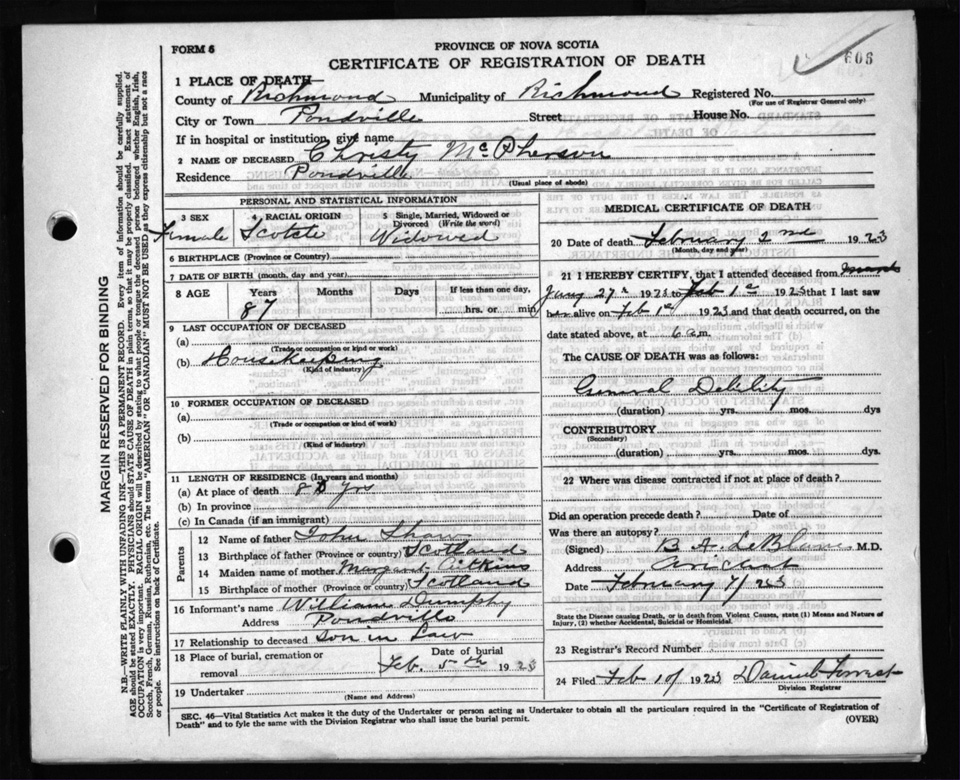 FORM 6
PROVINCE OF NOVA SCOTIA
CERTIFICATE OF REGISTRATION OF DEATH
606
1 PLACE OF DEATH—
County of Richmond Municipality of Richmond Registered No.
(For use of Registrar General only)
City or Town Pondville Street House No.
If in hospital or institution, give name
2 NAME OF DECEASED Christy McPherson
Residence Pondville
(Usual place of abode)
PERSONAL AND STATISTICAL INFORMATION
3 SEX Female
4 RACIAL ORIGIN Scotch
5 Single, Married, Widowed or Divorced (Write the word) Widowed
6 BIRTHPLACE (Province or Country)
7 DATE OF BIRTH (month, day and year)
8 AGE Years 87 Months Days If less than one day, hrs. or min.
9 LAST OCCUPATION OF DECEASED
(a)
(Trade or occupation or kind of work)
(b) Housekeeping
(Kind of Industry)
10 FORMER OCCUPATION OF DECEASED
(a)
(Trade or occupation or kind of work)
(b)
(Kind of Industry)
11 LENGTH OF RESIDENCE (In years and months)
(a) At place of death yrs
(b) In province
(c) In Canada (if an immigrant)
Parents
12 Name of father John Shaw
13 Birthplace of father (Province or country) Scotland
14 Maiden name of mother Margaret Aitkins
15 Birthplace of mother (Province or country) Scotland
16 Informant's name William Dumphy
Address Pondville
17 Relationship to deceased Son in Law
18 Place of burial, cremation or removal Date of burial Feb. 5th 1923
19 Undertaker
(Name and Address)
MEDICAL CERTIFICATE OF DEATH
20 Date of death February 2nd 1923
(Month, day and year)
21 I HEREBY CERTIFY, that I attended deceased from
27 1923 to Feb 1st 1923 that I last saw
alive on Feb 1st 1923 and that death occurred, on the
date stated above, at 6 am.
The CAUSE OF DEATH was as follows:
General Debility
(duration) yrs. mos. dys
CONTRIBUTORY
(Secondary)
(duration) yrs. mos. dys.
22 Where was disease contracted if not at place of death?
Did an operation precede death? Date of
Was there an autopsy?
(Signed) B A LeBlanc M.D.
Address Arichat
Date February 7/ 1923
State the Disease causing Death, or in death from Violent Causes, state (1) Means and Nature of Injury, (2) whether Accidental, Suicidal or Homicidal.
23 Registrar's Record Number
24 Filed Feb 10/ 1923 Daniel Forrest
Division Registrar
SEC. 46—Vital Statistics Act makes it the duty of the Undertaker or Person acting as Undertaker to obtain all the particulars required in the "Certificate of Registration of
Death" and to fyle the same with the Division Registrar who shall issue the burial permit.
(OVER)
MARGIN RESERVED FOR BINDING
N.B.—WRITE PLAINLY WITH UNFADING INK—THIS IS A PERMANENT RECORD. Every item of information should be carefully supplied.
AGE should be stated EXACTLY. PHYSICIANS should STATE CAUSE OF DEATH in plain terms, so that it may be properly classified. Exact statement of
OCCUPATION is very important. RACIAL ORIGIN will be described by stating to what people or tongue the deceased person belonged whether English, Irish,
Scotch, French, German, Russian, Ruthenian, etc. The terms "AMERICAN" OR "CANADIAN" MUST NOT BE USED as they express citizenship but not a race
or people. See instructions on back of Certificate.